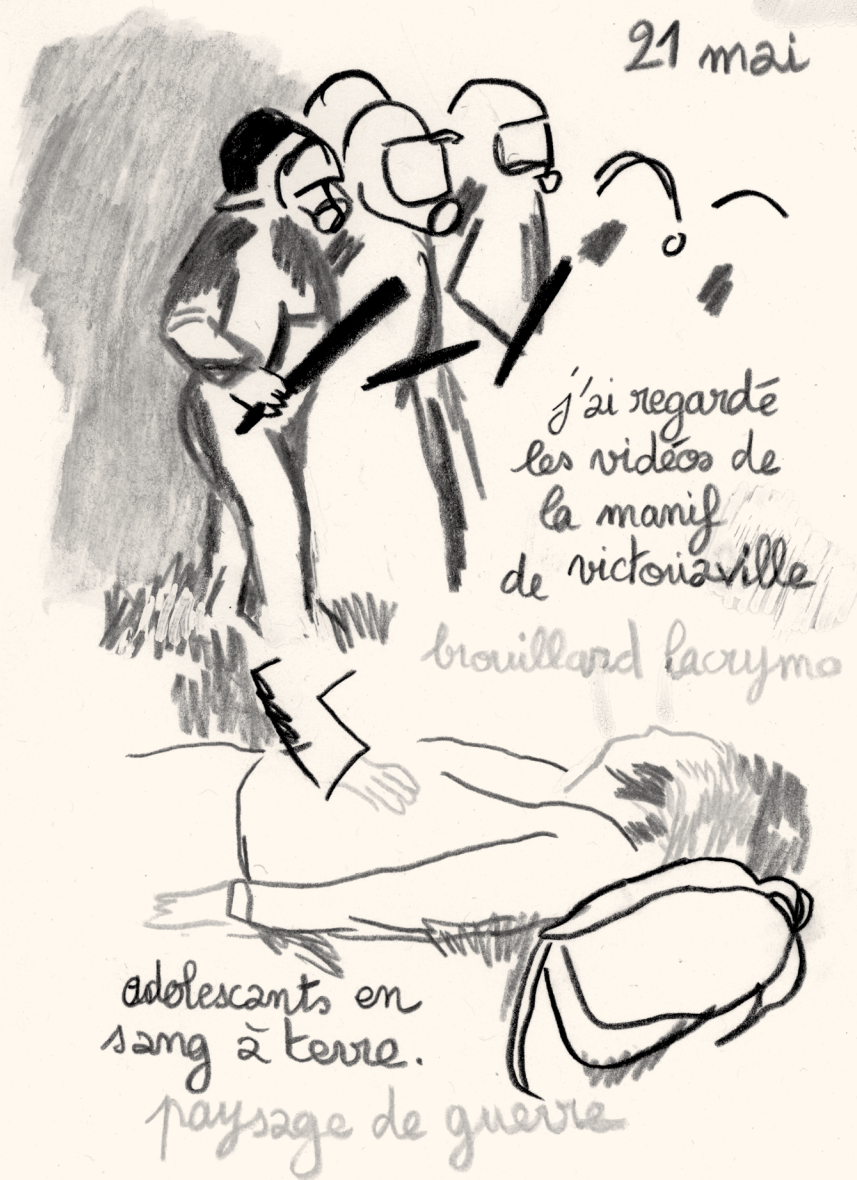 21 mai
j'ai regardé
les vidéos de
la manif
de victoriaville
brouillard lacrymo
adolescants en
sang à terre.
paysage de guerre